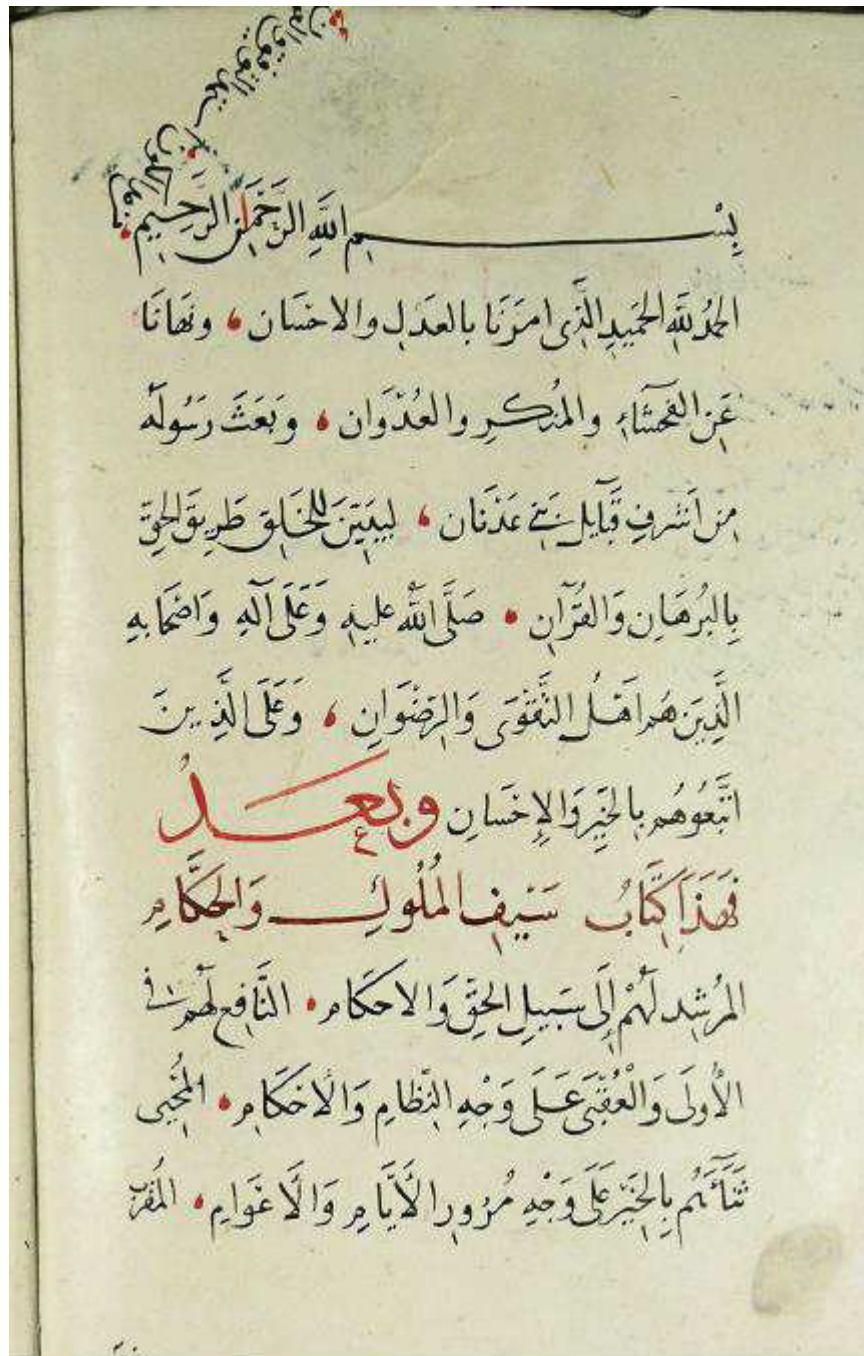 بِسْمِ اللَّهِ الرَّحْمَنِ الرَّحِيمِ
الحمدُ للَّهِ الحَمِيدِ الَّذِى امَرَنَا بالعَدْلِ والاحسَان ، ونهَانَا
عَنِ الفَحشَاءِ والمُنكَرِ والعُدْوَان ، وَبَعَثَ رَسُولَهُ
مِن اَشرفِ قَبَايل بَنى عَدْنَان ، ليُبَيِّنَ للخَلِق طَرِيقَ الحقِّ
بِالبُرهَانِ وَالقُرْآنِ ، صَلَّى اللَّه عليهِ وَعَلَى آلهِ وَاصْحَابهِ
الَّذِينَ هُم اَهْلُ التَّقْوَى وَالرِضْوَانِ ، وَعَلَى الَّذِينَ
اتَّبَعُوهُم بِالخَيرِ وَالإحْسَانِ وبعَدُ
فَهَذَا كِتَابُ سَيفِ المُلُوكِ وَالحُكَّامِ
المُرْشِد لَهُمْ إِلَى سَبِيلِ الحَقِّ وَالاحكَام ، النَّافِع لَهُم فى
الأُولَى وَالْعُقْبَى عَلَى وَجْهِ النِّظامِ وَالْاحْكَامِ ، المُحْيى
ثَنَآئَهُم بِالخَيْرِ عَلَى وَجْهِ مُرُورِ الأَيَّامِ وَالْاعْوَامِ ، المُقرِّب